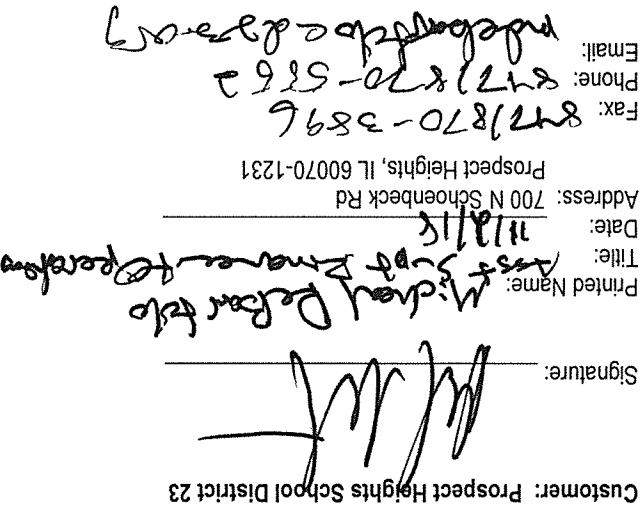 Customer: Prospect Heights School District 23
Signature:
Printed Name: Michael DeBartolo
Title: Asst Supt Finance + Operations
Date: 11/9/18
Address: 700 N Schoenbeck Rd
Prospect Heights, IL 60070-1231
Fax: 847/870-3896
Phone: 847/870-5552
Email: mdebartolo@d23.org